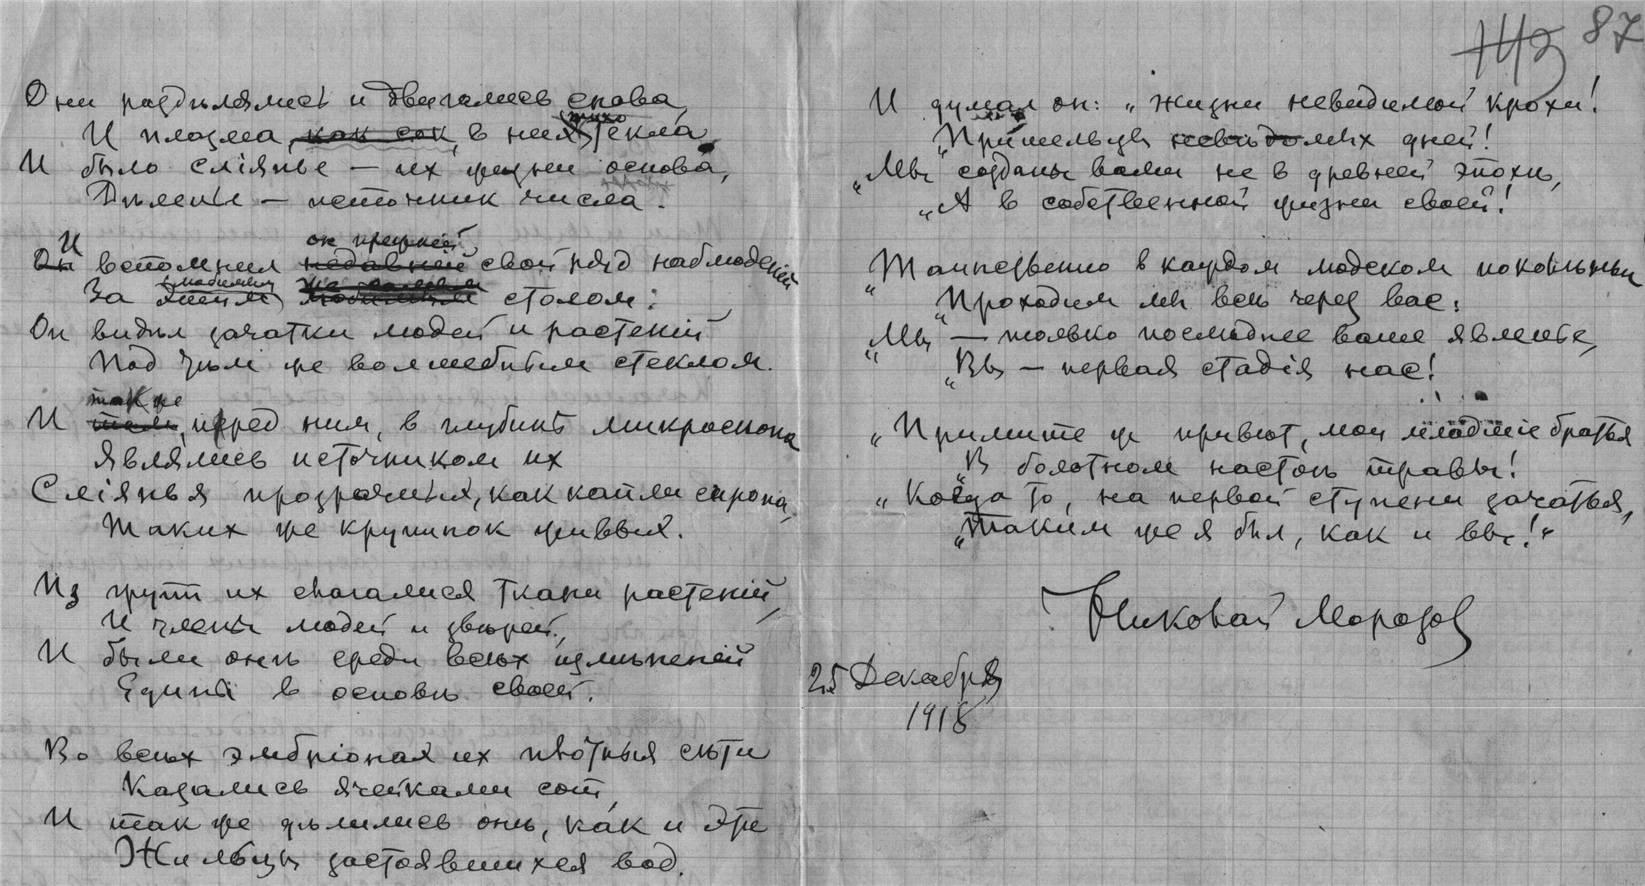 Они раздѣлялись и двигались снова,
И плазма, как сок, в них тихо текла
И было слiянье — их жизни основа,
Дѣленье — источник числа.
И вспомнил он прежнiй свой ряд наблюденiй
За любимым столом:
Он видѣл зачатки людей и растенiй
Под тѣм же волшебным стеклом.
И так же, перед ним, в глубинѣ микроскопа
Являлись источником их
Слiянья прозрачных, как капли сиропа,
Таких же крупинок живых.
Из групп их слагалися ткани растенiй,
И члены людей и звѣрей,
И были онѣ среди всѣх измѣненiй
Едины в основѣ своей.
Во всѣх эмбрiонах их плотныя сѣти
Казались ячейками сот,
И так же дѣлились онѣ, как и эти
Жильцы застоявшихся вод.
87
И думал он: „Жизни невидимой крохи!
„Пришельцы невѣдомых дней!
„Мы созданы вами не в древней эпохѣ,
„А в собственной жизни своей!
„Таинственно в каждом людском поколѣньи
„Проходим мы всѣ через вас:
„Мы — только послѣднее ваше явленье,
„Вы — первая стадiя нас!
„Примите ж привѣт, мои младшiе братья
„В болотном настоѣ травы!
„Когда то, на первой ступени зачатья,
„Таким же я был, как и вы!“
Николай Морозов
25 Декабря
1918